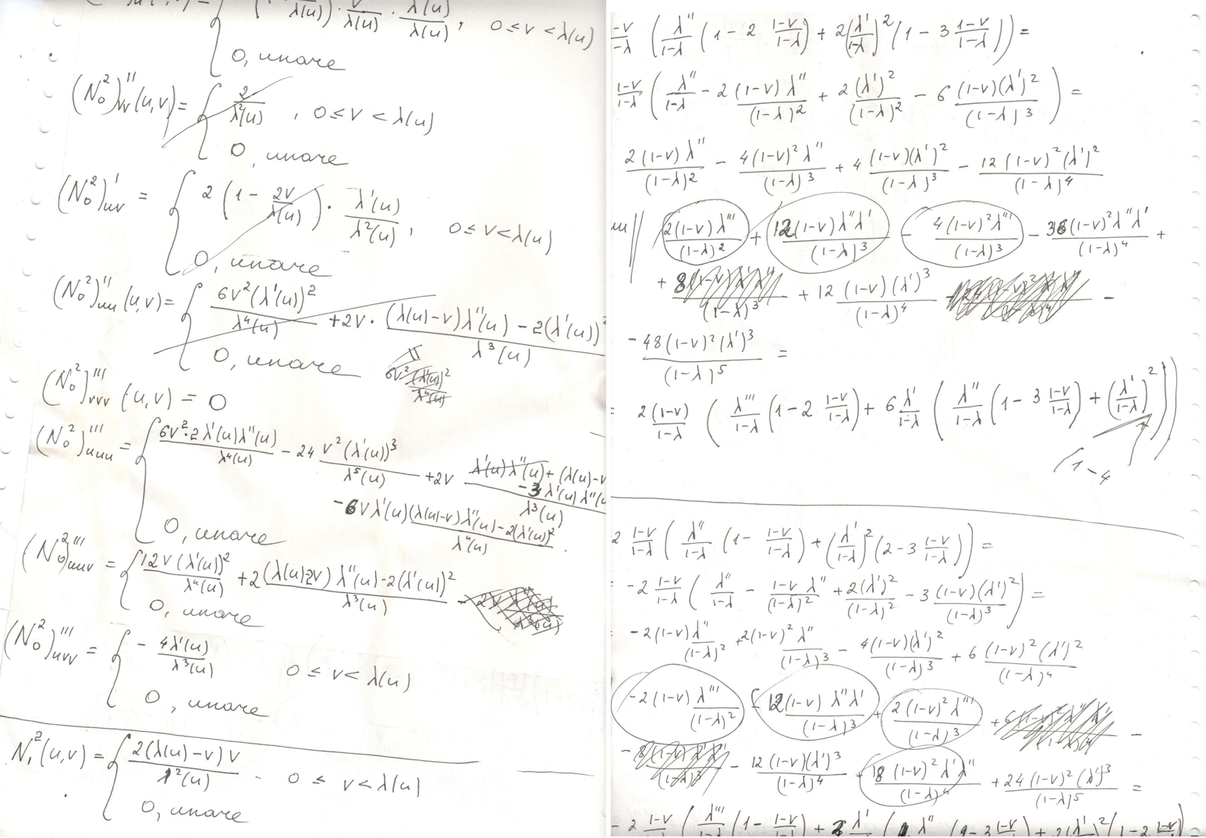 0, иначе
(N₀²)''ᵥᵥ(u,v) = { 2/λ²(u) , 0 ≤ v < λ(u)
0, иначе
(N₀²)'ᵤᵥ = { 2(1 - 2v/λ(u)) · λ'(u)/λ²(u), 0 ≤ v < λ(u)
0, иначе
(N₀²)''ᵤᵤ(u,v) = { 6v²(λ'(u))²/λ⁴(u) + 2v · ((λ(u)-v)λ''(u) - 2(λ'(u))²)/λ³(u)
0, иначе
(N₀²)'''ᵥᵥᵥ(u,v) = 0
(N₀²)'''ᵤᵤᵤ = { 6v²·2λ'(u)λ''(u)/λ⁴(u) - 24 v²(λ'(u))³/λ⁵(u) + 2v
- 6vλ'(u) ((λ(u)-v)λ''(u) - 2(λ'(u))²)/λ⁴(u)
0, иначе
(N₀²)'''ᵤᵤᵥ = { 12v(λ'(u))²/λ⁴(u) + 2 ((λ(u)-2v)λ''(u) - 2(λ'(u))²)/λ³(u)
0, иначе
(N₀²)'''ᵤᵥᵥ = { - 4λ'(u)/λ³(u) 0 ≤ v < λ(u)
0, иначе
N₁²(u,v) = { 2(λ(u)-v)v/λ²(u) 0 ≤ v < λ(u)
0, иначе
(1-v)/(1-λ) (λ''/(1-λ) (1 - 2 (1-v)/(1-λ)) + 2(λ'/(1-λ))² (1 - 3 (1-v)/(1-λ))) =
(1-v)/(1-λ) (λ''/(1-λ) - 2(1-v)λ''/(1-λ)² + 2(λ')²/(1-λ)² - 6 (1-v)(λ')²/(1-λ)³) =
2(1-v)λ''/(1-λ)² - 4(1-v)²λ''/(1-λ)³ + 4(1-v)(λ')²/(1-λ)³ - 12(1-v)²(λ')²/(1-λ)⁴
2(1-v)λ'''/(1-λ)² + 12(1-v)λ''λ'/(1-λ)³ - 4(1-v)²λ'''/(1-λ)³ - 36(1-v)²λ''λ'/(1-λ)⁴ +
+ 12(1-v)(λ')³/(1-λ)⁴ -
- 48(1-v)²(λ')³/(1-λ)⁵ =
= 2(1-v)/(1-λ) (λ'''/(1-λ) (1 - 2 (1-v)/(1-λ)) + 6 λ'/(1-λ) (λ''/(1-λ) (1 - 3 (1-v)/(1-λ)) + (λ'/(1-λ))²))
(1-4
2 (1-v)/(1-λ) (λ''/(1-λ) (1 - (1-v)/(1-λ)) + (λ'/(1-λ))² (2 - 3 (1-v)/(1-λ))) =
-2 (1-v)/(1-λ) (λ''/(1-λ) - (1-v)λ''/(1-λ)² + 2(λ')²/(1-λ)² - 3 (1-v)(λ')²/(1-λ)³) =
-2(1-v)λ''/(1-λ)² + 2(1-v)²λ''/(1-λ)³ - 4(1-v)(λ')²/(1-λ)³ + 6 (1-v)²(λ')²/(1-λ)⁴
-2(1-v)λ'''/(1-λ)² - 12(1-v)λ''λ'/(1-λ)³ + 2(1-v)²λ'''/(1-λ)³ -
- 12(1-v)(λ')³/(1-λ)⁴ + 18(1-v)²λ'λ''/(1-λ)⁴ + 24(1-v)²(λ')³/(1-λ)⁵ =